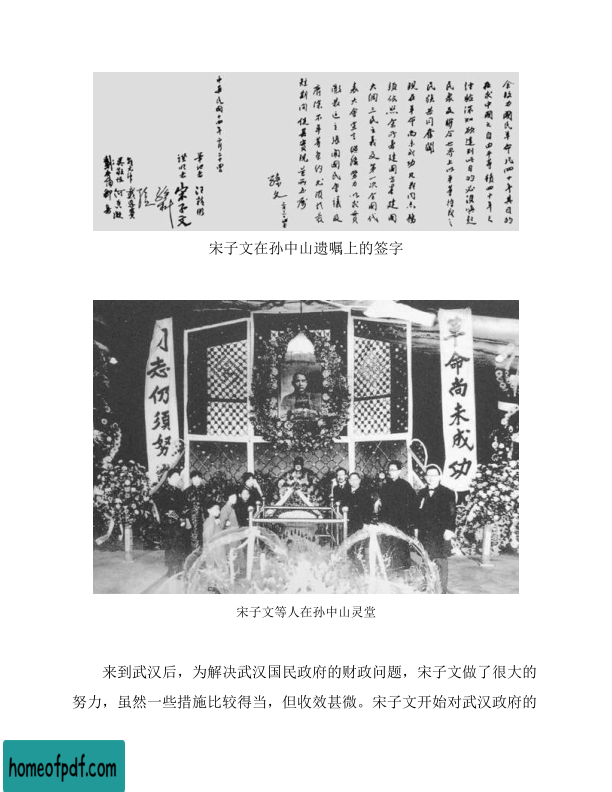 余致力國民革命凡四十年其目的
在求中國之自由平等積四十年之
經驗深知欲達到此目的必須喚起
民衆及聯合世界上以平等待我之
民族共同奮鬪
現在革命尚未成功凡我同志務
須依照余所著建國方略建國
大綱三民主義及第一次全國代
表大會宣言繼續努力以求貫
徹最近主張開國民會議及
廢除不平等條約尤須於最
短期間促其實現是所至囑
孫文
中華民國十四年二月二十四
筆記者 汪精衛
證明者 宋子文
宋子文在孙中山遗嘱上的签字
革命尚未成功
同志仍須努
宋子文等人在孙中山灵堂
来到武汉后，为解决武汉国民政府的财政问题，宋子文做了很大的
努力，虽然一些措施比较得当，但收效甚微。宋子文开始对武汉政府的
homeofpdf.com